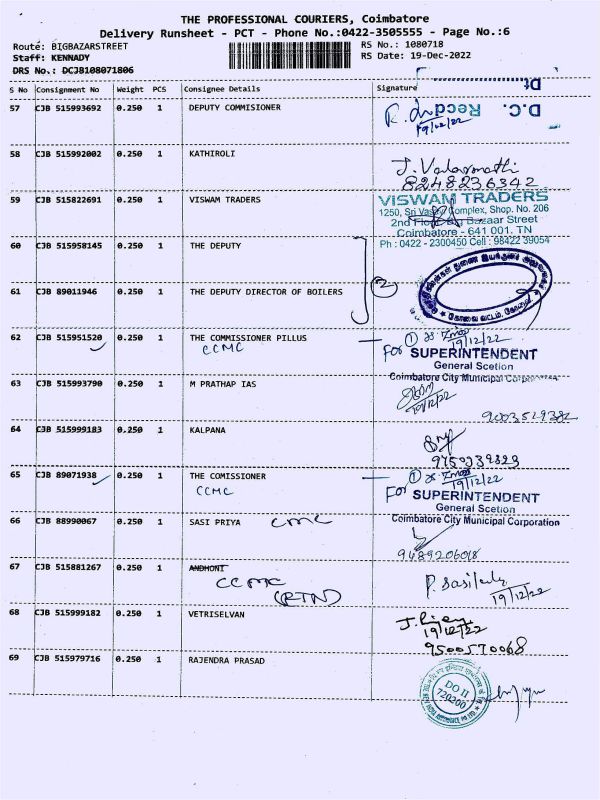 THE PROFESSIONAL COURIERS, Coimbatore
Delivery Runsheet - PCT - Phone No.:0422-3505555 - Page No.:6
Route: BIGBAZARSTREET
RS No.: 1080718
Staff: KENNADY
RS Date: 19-Dec-2022
DRS No.: DCJB108071806
S No Consignment No Weight PCS Consignee Details Signature
Dt
57 CJB 515993692 0.250 1 DEPUTY COMMISIONER
D.C. Recd
19/12/22
58 CJB 515992002 0.250 1 KATHIROLI
8248236342
59 CJB 515822691 0.250 1 VISWAM TRADERS
VISWAM TRADERS
1250, Sri Vasavi Complex, Shop. No. 206
2nd Floor Big Bazaar Street
Coimbatore - 641 001. TN
Ph : 0422 - 2300450 Cell : 98422 39054
60 CJB 515958145 0.250 1 THE DEPUTY
2
61 CJB 89011946 0.250 1 THE DEPUTY DIRECTOR OF BOILERS
62 CJB 515951520 0.250 1 THE COMMISSIONER PILLUS
CCMC
19/12/22
For SUPERINTENDENT
General Scetion
Coimbatore City Municipal Corporation
63 CJB 515993790 0.250 1 M PRATHAP IAS
19/12/22
9003529382
64 CJB 515999183 0.250 1 KALPANA
9750239323
65 CJB 89071938 0.250 1 THE COMISSIONER
CCMC
19/12/22
For SUPERINTENDENT
General Scetion
Coimbatore City Municipal Corporation
66 CJB 88990067 0.250 1 SASI PRIYA CMC
9489206018
67 CJB 515881267 0.250 1 ANDHONI
CCMC
(RTN)
19/12/22
68 CJB 515999182 0.250 1 VETRISELVAN
19/12/22
9500570068
69 CJB 515979716 0.250 1 RAJENDRA PRASAD
DO II
720200